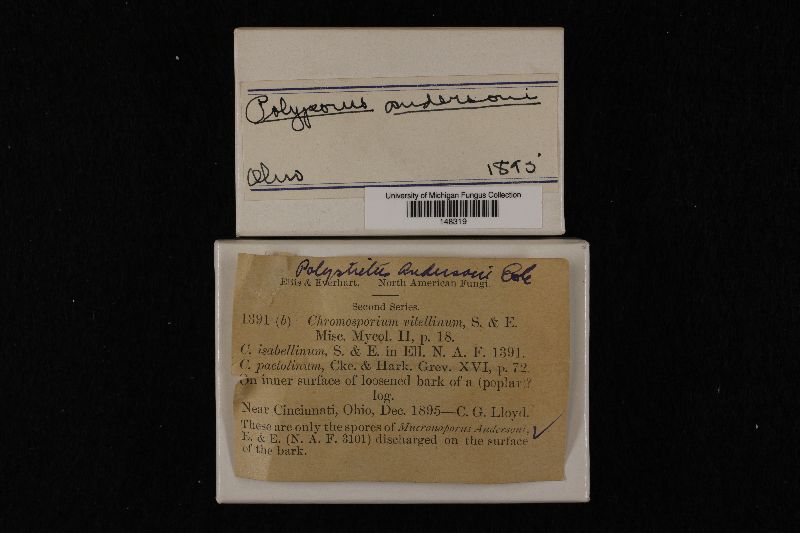 Polyporus andersoni
Ohio 1895
University of Michigan Fungus Collection
148319
Polystictus Andersoni
Ellis & Everhart. North American Fungi.
Second Series.
1391 (b) Chromosporium vitellinum, S. & E.
Misc. Mycol. II, p. 18.
C. isabellinum, S. & E. in Ell. N. A. F. 1391.
C. pactolinum, Cke. & Hark. Grev. XVI, p. 72.
On inner surface of loosened bark of a (poplar)?
log.
Near Cincinnati, Ohio, Dec. 1895—C. G. Lloyd.
These are only the spores of Mucronoporus Andersoni,
E. & E. (N. A. F. 3101) discharged on the surface
of the bark.